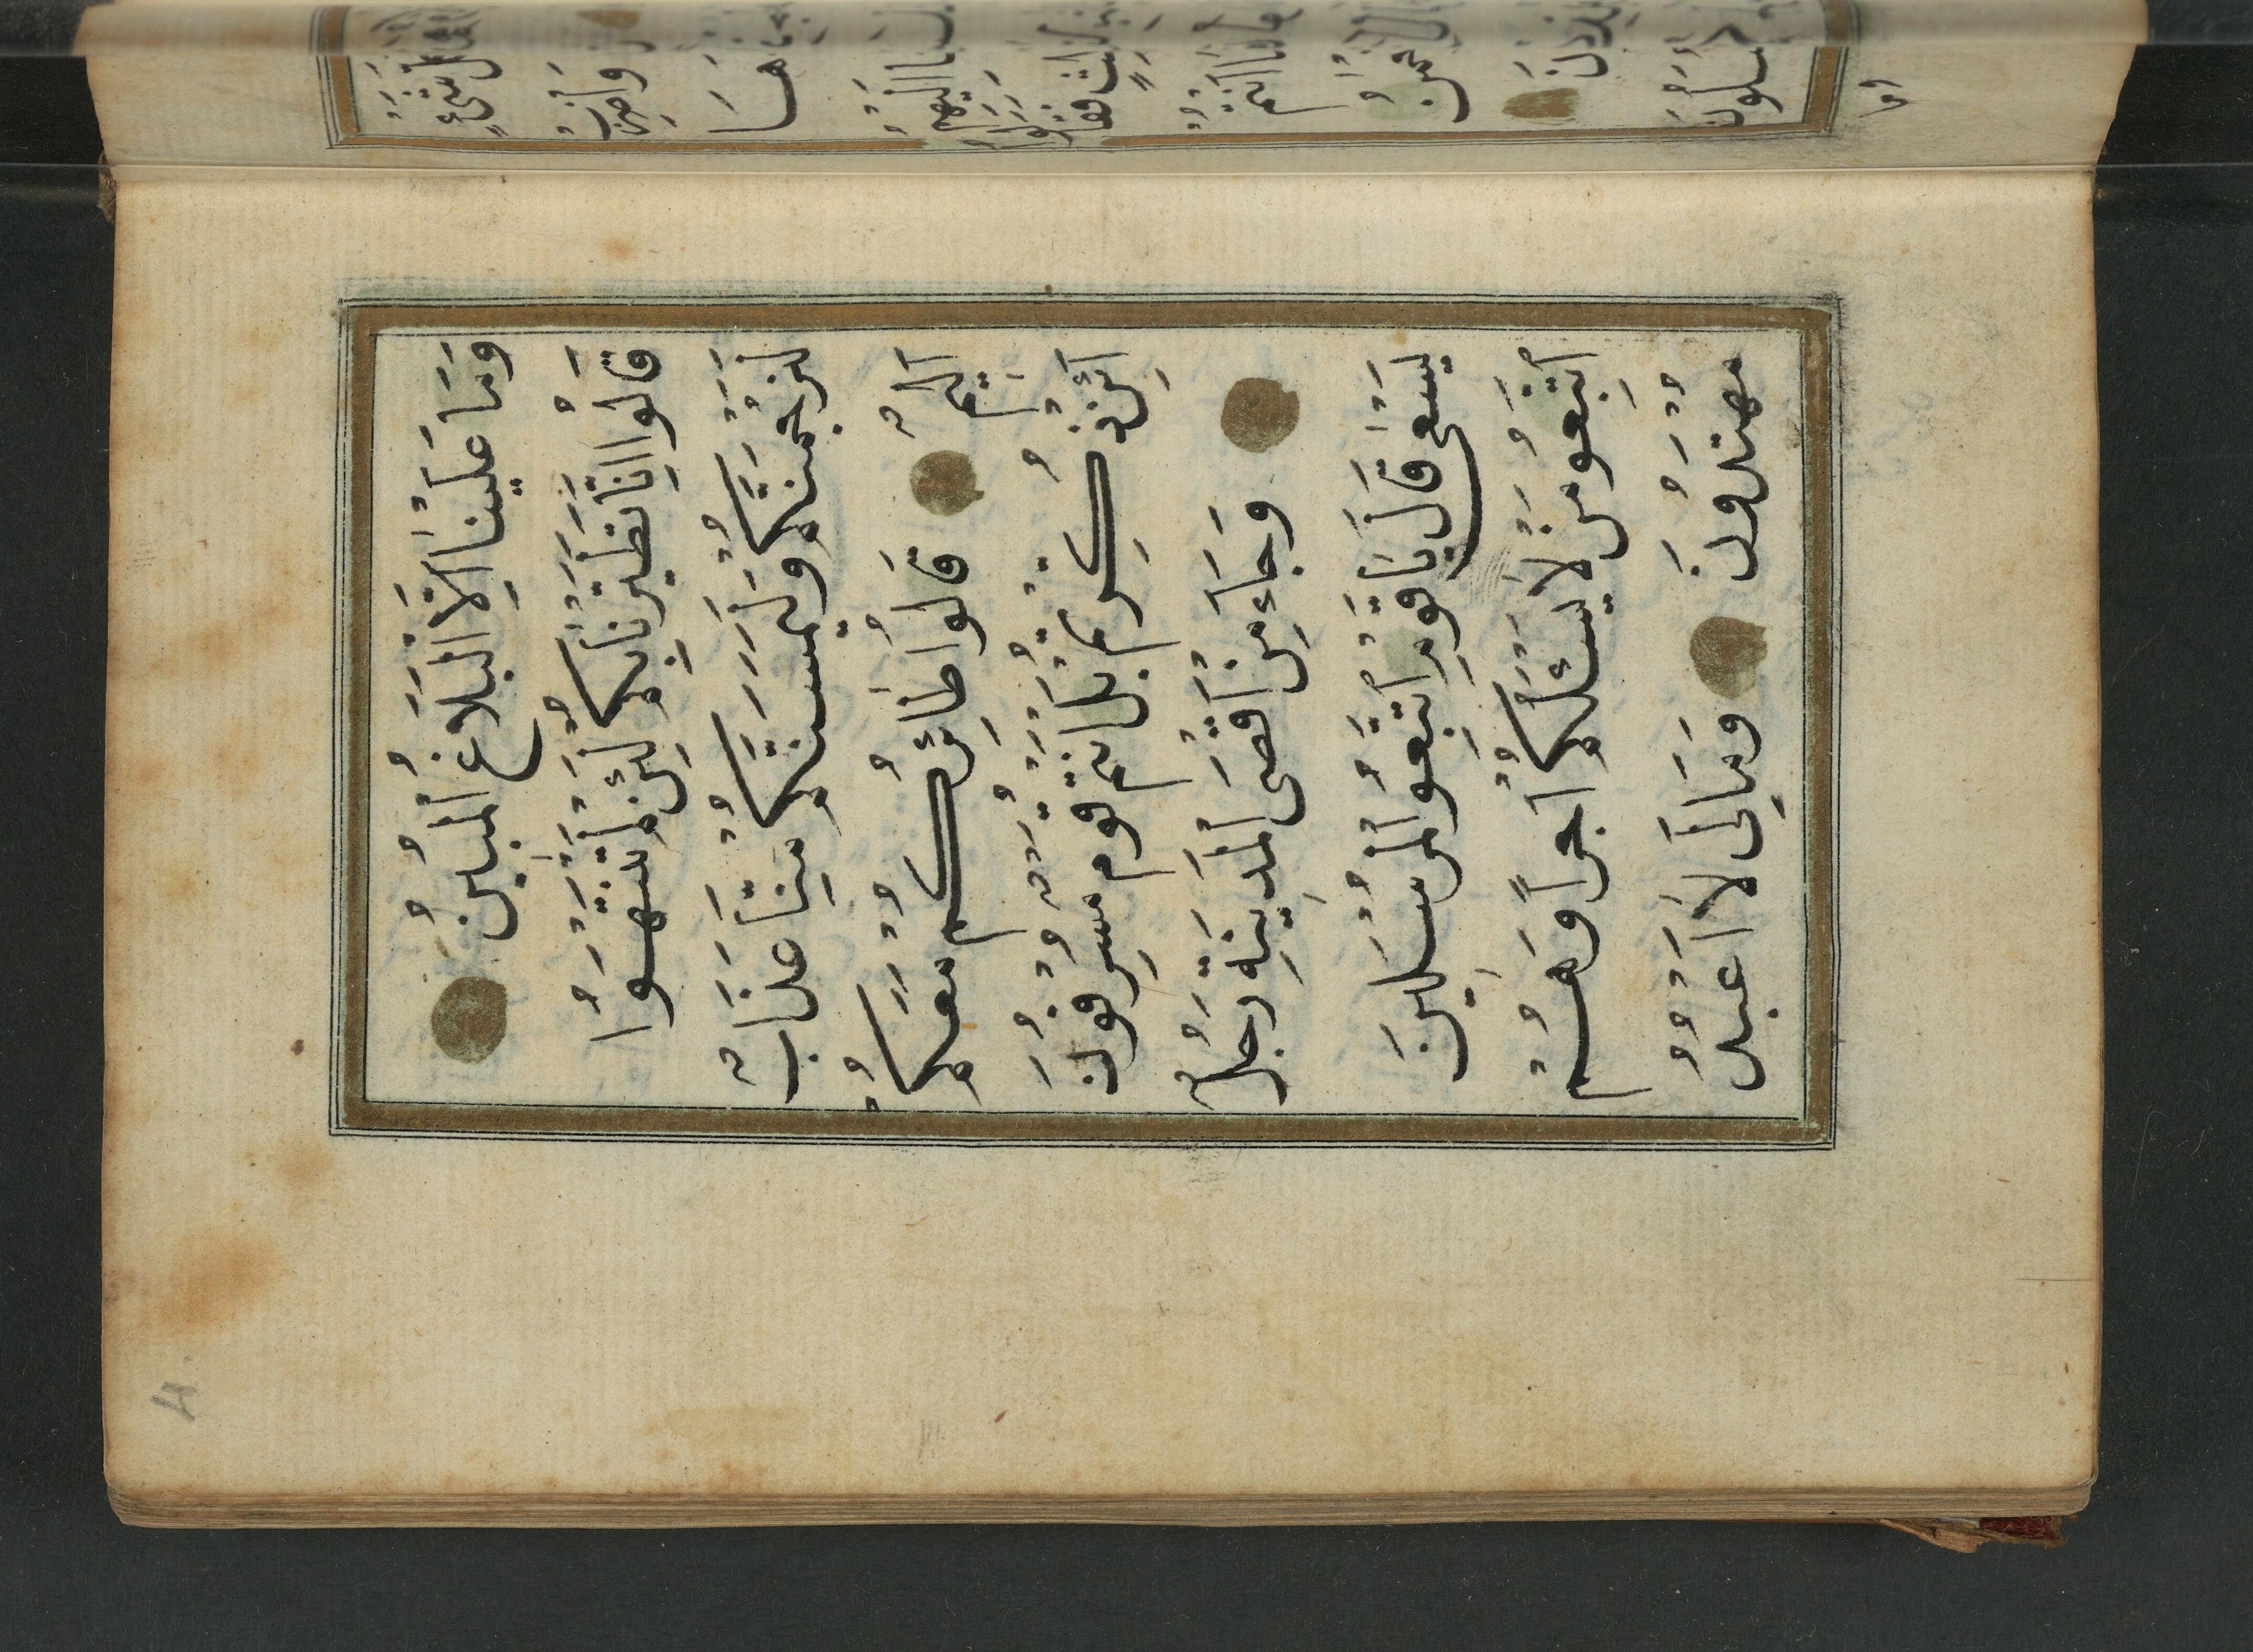 وَمَا عَلَيْنَا اِلَّا الْبَلَاغُ الْمُبِينُ
قَالُوا اِنَّا تَطَيَّرْنَا بِكُمْ لَئِنْ لَمْ تَنْتَهُوا
لَنَرْجُمَنَّكُمْ وَلَيَمَسَّنَّكُمْ مِنَّا عَذَابٌ
اَلِيمٌ قَالُوا طَائِرُكُمْ مَعَكُمْ
اَئِنْ ذُكِّرْتُمْ بَلْ اَنْتُمْ قَوْمٌ مُسْرِفُونَ
وَجَاءَ مِنْ اَقْصَى الْمَدِينَةِ رَجُلٌ
يَسْعٰى قَالَ يَا قَوْمِ اتَّبِعُوا الْمُرْسَلِينَ
اِتَّبِعُوا مَنْ لَا يَسْئَلُكُمْ اَجْرًا وَهُمْ
مُهْتَدُونَ وَمَا لِىَ لَا اَعْبُدُ